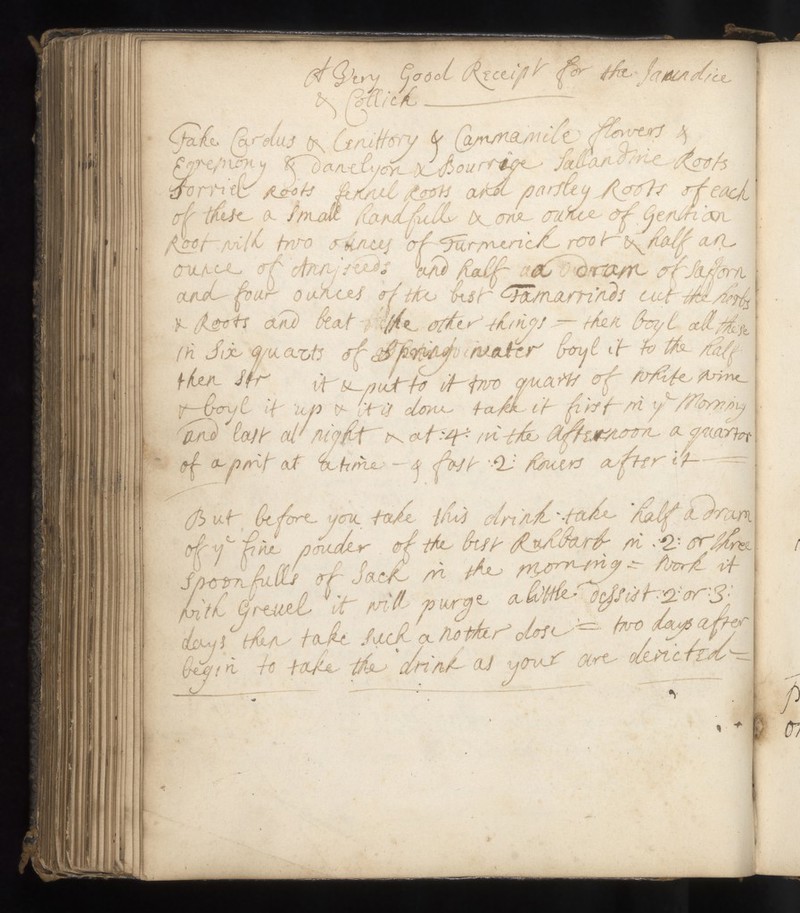 A Very Good Receipt for the Jaundice
& Collick
Take Cardus & Cenittory & Cammamile flowers &
Egremony & Danelyon & Bourrige Sallandine Roots
Sorriel Roots fennel Roots and parsley Roots of each
of these a Small handfull & one ounce of Gentian
Root with two ounces of Turmerick root & half an
ounce of Annjseeds and half a dram of Saforn
and four ounces of the best Tamarrinds cut the herbs
& Roots and beat the other things = then boyl all these
in Six quarts of Spring water boyl it to the half
then Str it & put to it two quarts of white wine
& boyl it up & it is done take it first in ye Morning
and last at night & at :4: in the Afternoon a quartor
of a pint at a time - & fast :2: houers after it
But before you take this drink take half a dram
of ye fine pouder of the best Ruhbarb in :2: or three
Spoonfulls of Sack in the morning = work it
with Greuel it will purge a little desist :2: or :3:
days then take such a nother dose = two days after
begin to take the drink as your are dericted =